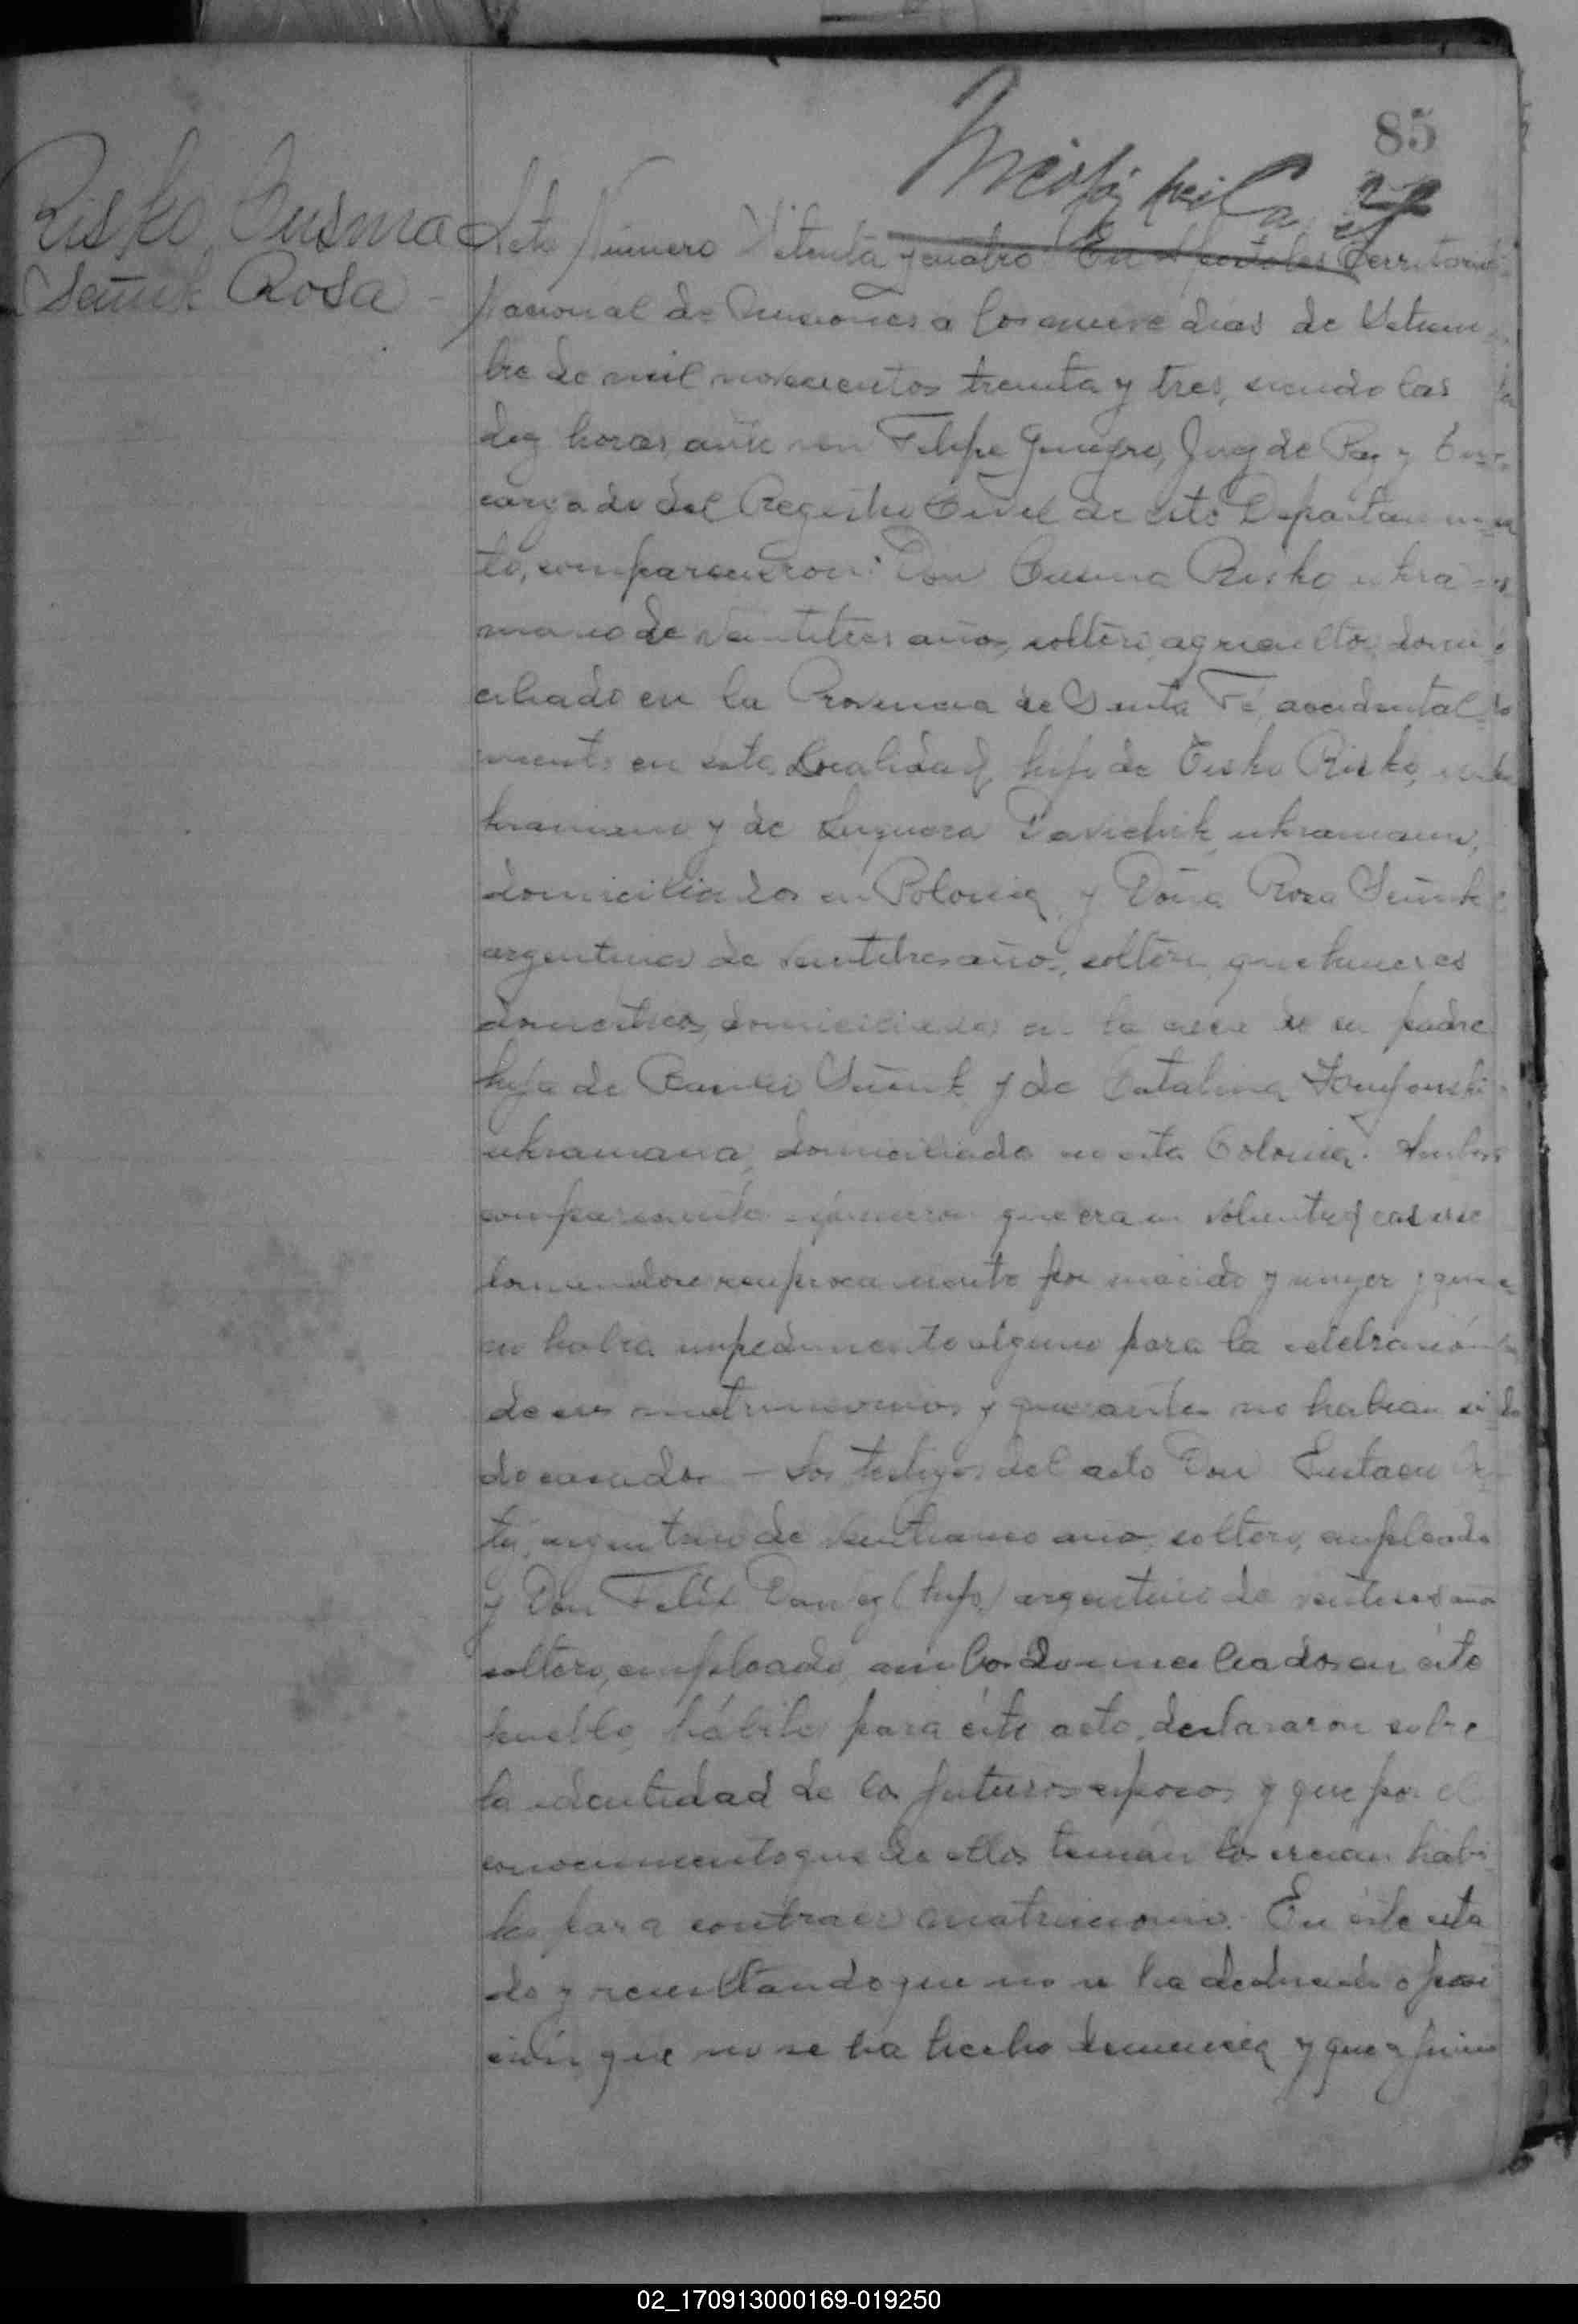 85
Risko Cusma
Señuk Rosa
Acta Número Setenta y cuatro En Apostoles Territorio
Nacional de Misiones a los nueve dias de Setiem
bre de mil novecientos treinta y tres, siendo las
diez horas, ante mi Felipe Juez de Paz y En
cargado del Registro Civil de este Departamen
to, comparecieron: Don Cusma Risko ukra
niano de veintitres años, soltero, agricultor, domi
ciliado en la Provincia de Santa Fé, accidental
mente en esta Localidad, hijo de Risko, u
kraniano y de Pavichik, ukraniana,
domiciliados en Polonia, y Doña Rosa Señuk
argentina de veintitres años, soltera, quehaceres
domesticos, domiciliada en la casa de su padre
hija de Señuk y de Catalina
ukraniana, domiciliada en esta Colonia. Ambos
comparecientes que era su voluntad casarse
tomandose reciprocamente por marido y mujer y que
no habia impedimento alguno para la celebración
de ese matrimonio y que antes no habian si
do casados - Los testigos del acto Don
argentino de años, soltero, empleado
y Don Felix (hijo) argentino de años
soltero, empleado, ambos domiciliados en este
pueblo, hábiles para este acto, declararon sobre
la identidad de los futuros esposos y que por el
conocimiento que de ellos tenian los creian hábi
les para contraer matrimonio. En este esta
do y resultando que no se ha deducido oposi
ción, que no se ha hecho denuncia y que
02_170913000169-019250